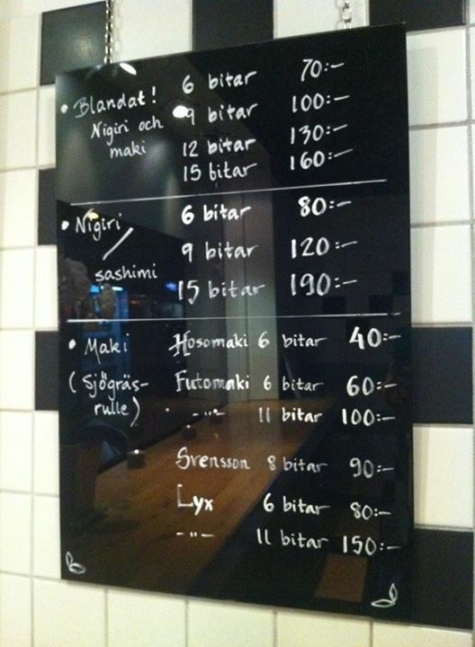 • Blandat! 6 bitar 70:-
Nigiri och 9 bitar 100:-
maki 12 bitar 130:-
15 bitar 160:-
• Nigiri/ 6 bitar 80:-
9 bitar 120:-
sashimi 15 bitar 190:-
• Maki Hosomaki 6 bitar 40:-
(Sjögräs- Futomaki 6 bitar 60:-
rulle) -"- 11 bitar 100:-
Svensson 8 bitar 90:-
Lyx 6 bitar 80:-
-"- 11 bitar 150:-